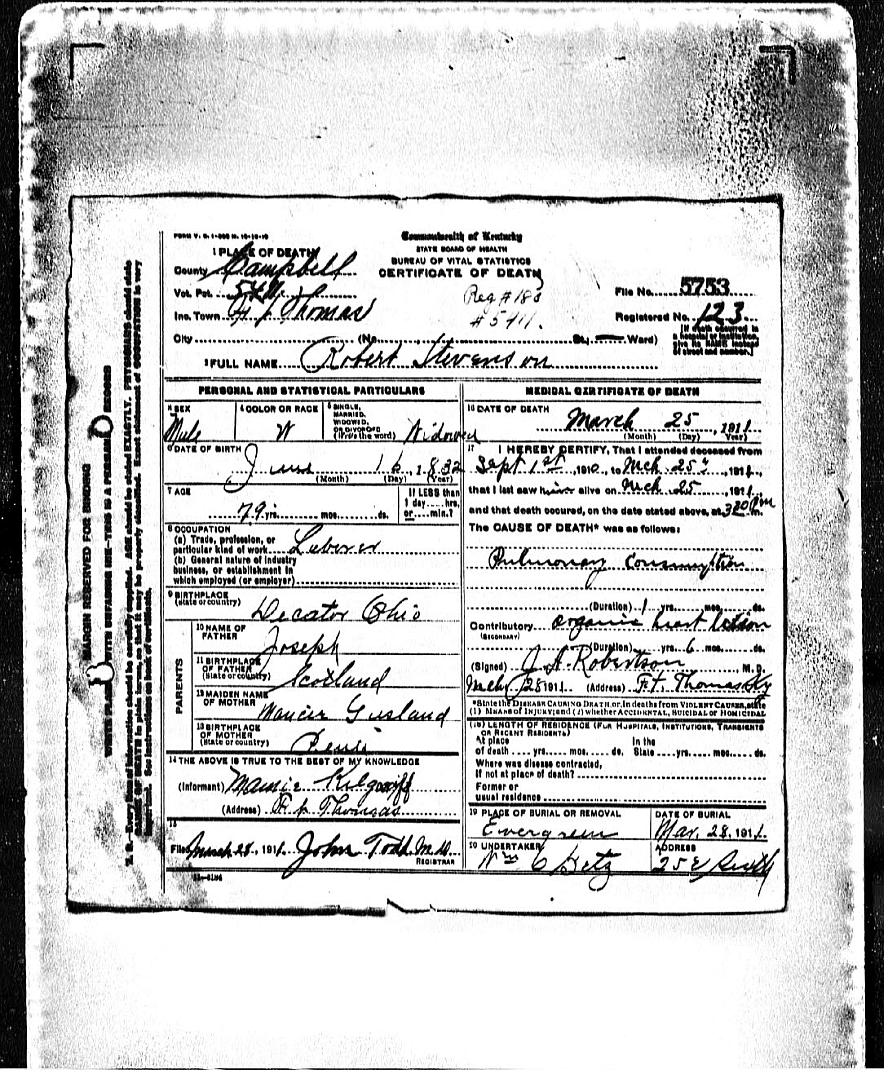 FORM V. S. 1-
Commonwealth of Kentucky
STATE BOARD OF HEALTH
BUREAU OF VITAL STATISTICS
CERTIFICATE OF DEATH
1 PLACE OF DEATH
County Campbell
Vot. Pct.
Inc. Town Ft Thomas
City (No. St., Ward)
Reg # 183
# 5411.
File No. 5753
Registered No. 123
[If death occurred in a hospital or institution, give its NAME instead of street and number.]
2 FULL NAME Robert Stevenson
PERSONAL AND STATISTICAL PARTICULARS
3 SEX Male
4 COLOR OR RACE W
5 SINGLE, MARRIED, WIDOWED, OR DIVORCED (Write the word) Widowed
6 DATE OF BIRTH June 16, 1832
(Month) (Day) (Year)
7 AGE 79 yrs. mos. ds.
If LESS than 1 day hrs. or min.?
8 OCCUPATION
(a) Trade, profession, or particular kind of work Laborer
(b) General nature of industry business, or establishment in which employed (or employer)
9 BIRTHPLACE (State or country) Decator Ohio
PARENTS
10 NAME OF FATHER Joseph
11 BIRTHPLACE OF FATHER (State or country) Scotland
12 MAIDEN NAME OF MOTHER
13 BIRTHPLACE OF MOTHER (State or country)
14 THE ABOVE IS TRUE TO THE BEST OF MY KNOWLEDGE
(Informant) Mamie
(Address) Ft Thomas
15
Filed March 28, 1911. John Todd M.D.
REGISTRAR
MEDICAL CERTIFICATE OF DEATH
16 DATE OF DEATH March 25, 1911
(Month) (Day) (Year)
17 I HEREBY CERTIFY, That I attended deceased from
Sept 1st, 1910, to Mch 25, 1911,
that I last saw him alive on Mch 25, 1911,
and that death occured, on the date stated above, at 3 20 Pm m.
The CAUSE OF DEATH* was as follows:
Pulmonary Consumption
(Duration) 1 yrs. mos. ds.
Contributory organic heart lesion
(SECONDARY)
(Duration) yrs. 6 mos. ds.
(Signed) J. A. Robertson, M. D.
Mch 28 1911. (Address) Ft. Thomas Ky
*State the DISEASE CAUSING DEATH, or, in deaths from VIOLENT CAUSES, state (1) MEANS OF INJURY; and (2) whether ACCIDENTAL, SUICIDAL or HOMICIDAL
(18) LENGTH OF RESIDENCE (FOR HOSPITALS, INSTITUTIONS, TRANSIENTS OR RECENT RESIDENTS)
At place of death yrs. mos. ds. In the State yrs. mos. ds.
Where was disease contracted, if not at place of death?
Former or usual residence
19 PLACE OF BURIAL OR REMOVAL Evergreen
DATE OF BURIAL Mar. 28, 1911.
20 UNDERTAKER Wm C Hetz
ADDRESS 25 E
MARGIN RESERVED FOR BINDING